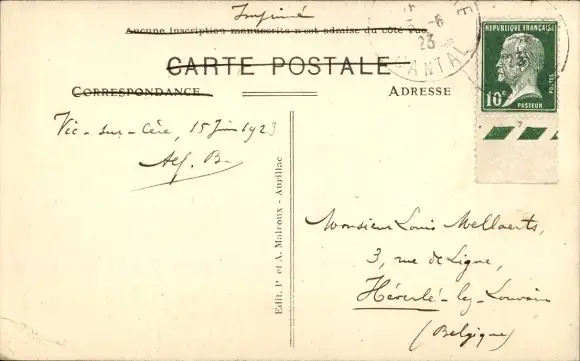 Imprimé
Aucune inscription manuscrite n'est admise du côté vue
CARTE POSTALE
CORRESPONDANCE
ADRESSE
6
23
CANTAL
REPUBLIQUE FRANÇAISE
10c
POSTES
PASTEUR
Vic-sur-Cère, 15 Juin 1923
Alf. B
Edit. P. et A. Malroux - Aurillac
Monsieur Louis Mellaerts,
3, rue de Ligne,
Héverlé-lez-Louvain
(Belgique)